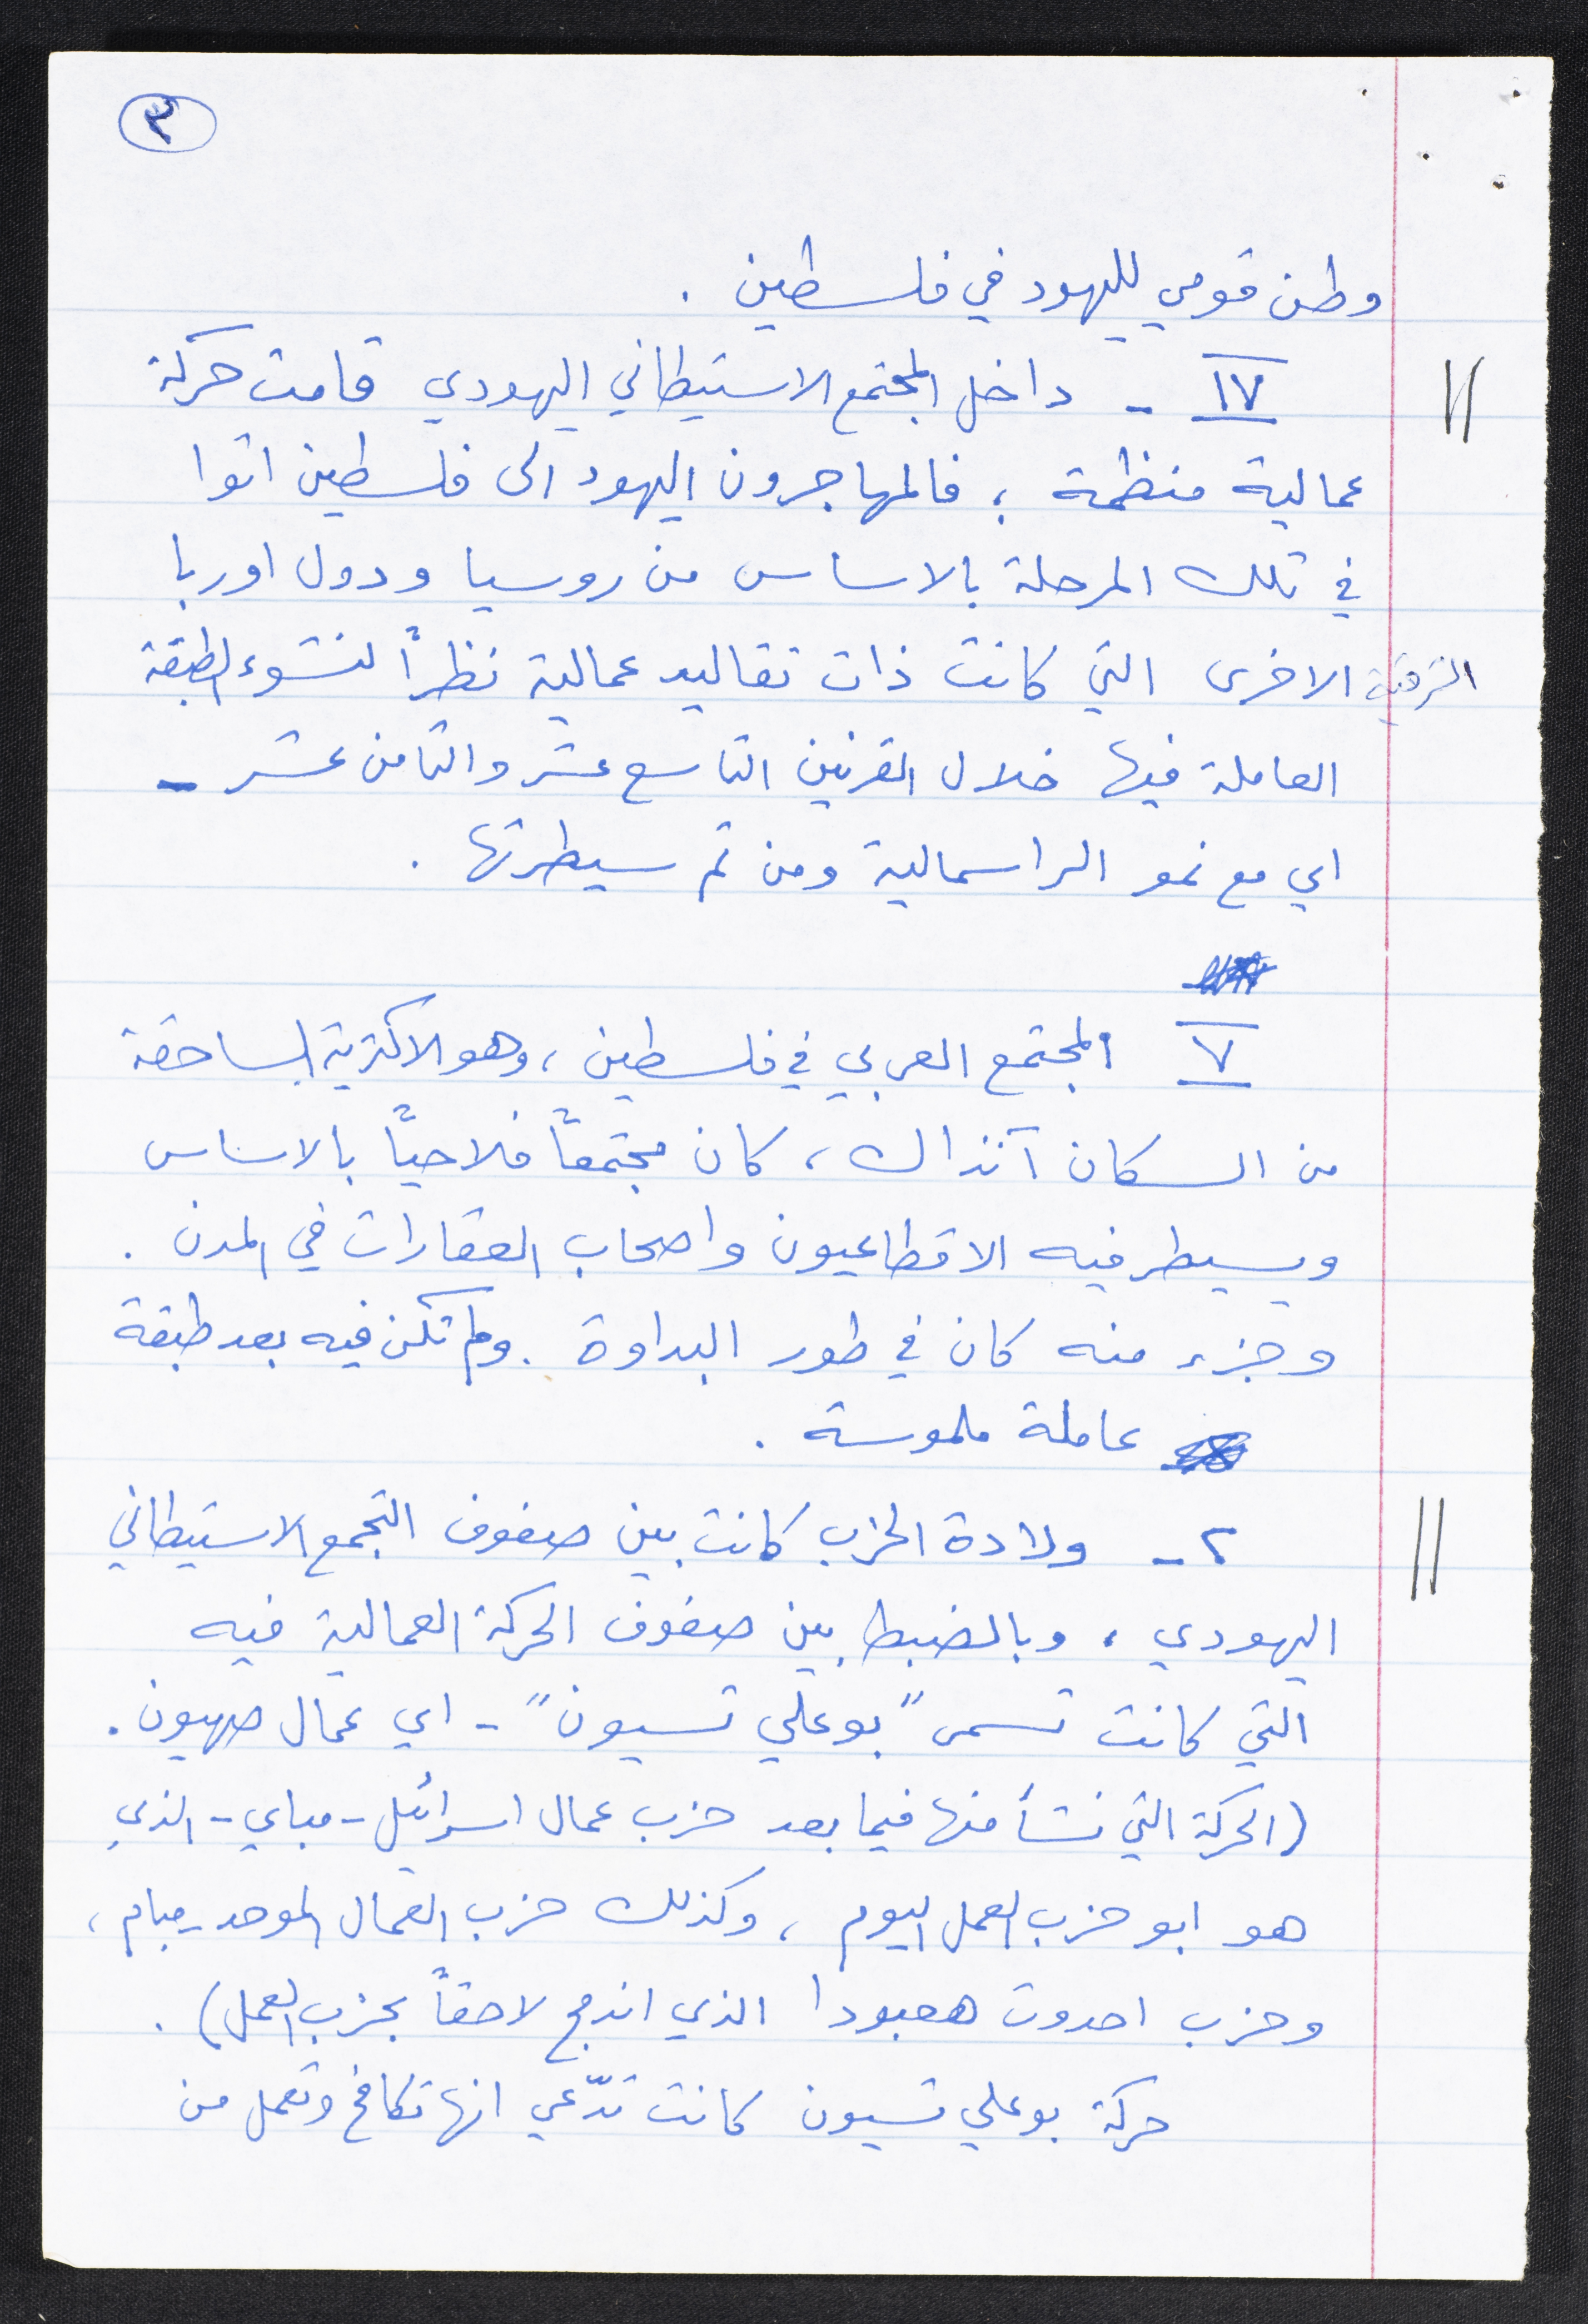 ٣
وطن قومي لليهود في فلسطين .
IV - داخل المجتمع الاستيطاني اليهودي قامت حركة
عمالية منظمة ؛ فالمهاجرون اليهود الى فلسطين اتوا
في تلك المرحلة بالاساس من روسيا ودول اوربا
الشرقية الاخرى التي كانت ذات تقاليد عمالية نظراً لنشوء الطبقة
العاملة فيها خلال القرنين التاسع عشر والثامن عشر -
اي مع نمو الراسمالية ومن ثم سيطرتها .
V المجتمع العربي في فلسطين ، وهو الاكثرية الساحقة
من السكان آنذاك ، كان مجتمعاً فلاحياً بالاساس
ويسيطر فيه الاقطاعيون واصحاب العقارات في المدن .
وجزء منه كان في طور البداوة . ولم تكن فيه بعد طبقة
عاملة ملموسة .
٢ - ولادة الحزب كانت بين صفوف التجمع الاستيطاني
اليهودي ، وبالضبط بين صفوف الحركة العمالية فيه
التي كانت تسمى "بوعلي تسيون" - اي عمال صهيون .
(الحركة التي نشأ منها فيما بعد حزب عمال اسرائيل - مباي - الذي
هو ابو حزب العمل اليوم ، وكذلك حزب العمال الموحد - مبام ،
وحزب احدوت هعبودا الذي اندمج لاحقاً بحزب العمل) .
حركة بوعلي تسيون كانت تدّعي انها تكافح وتعمل من